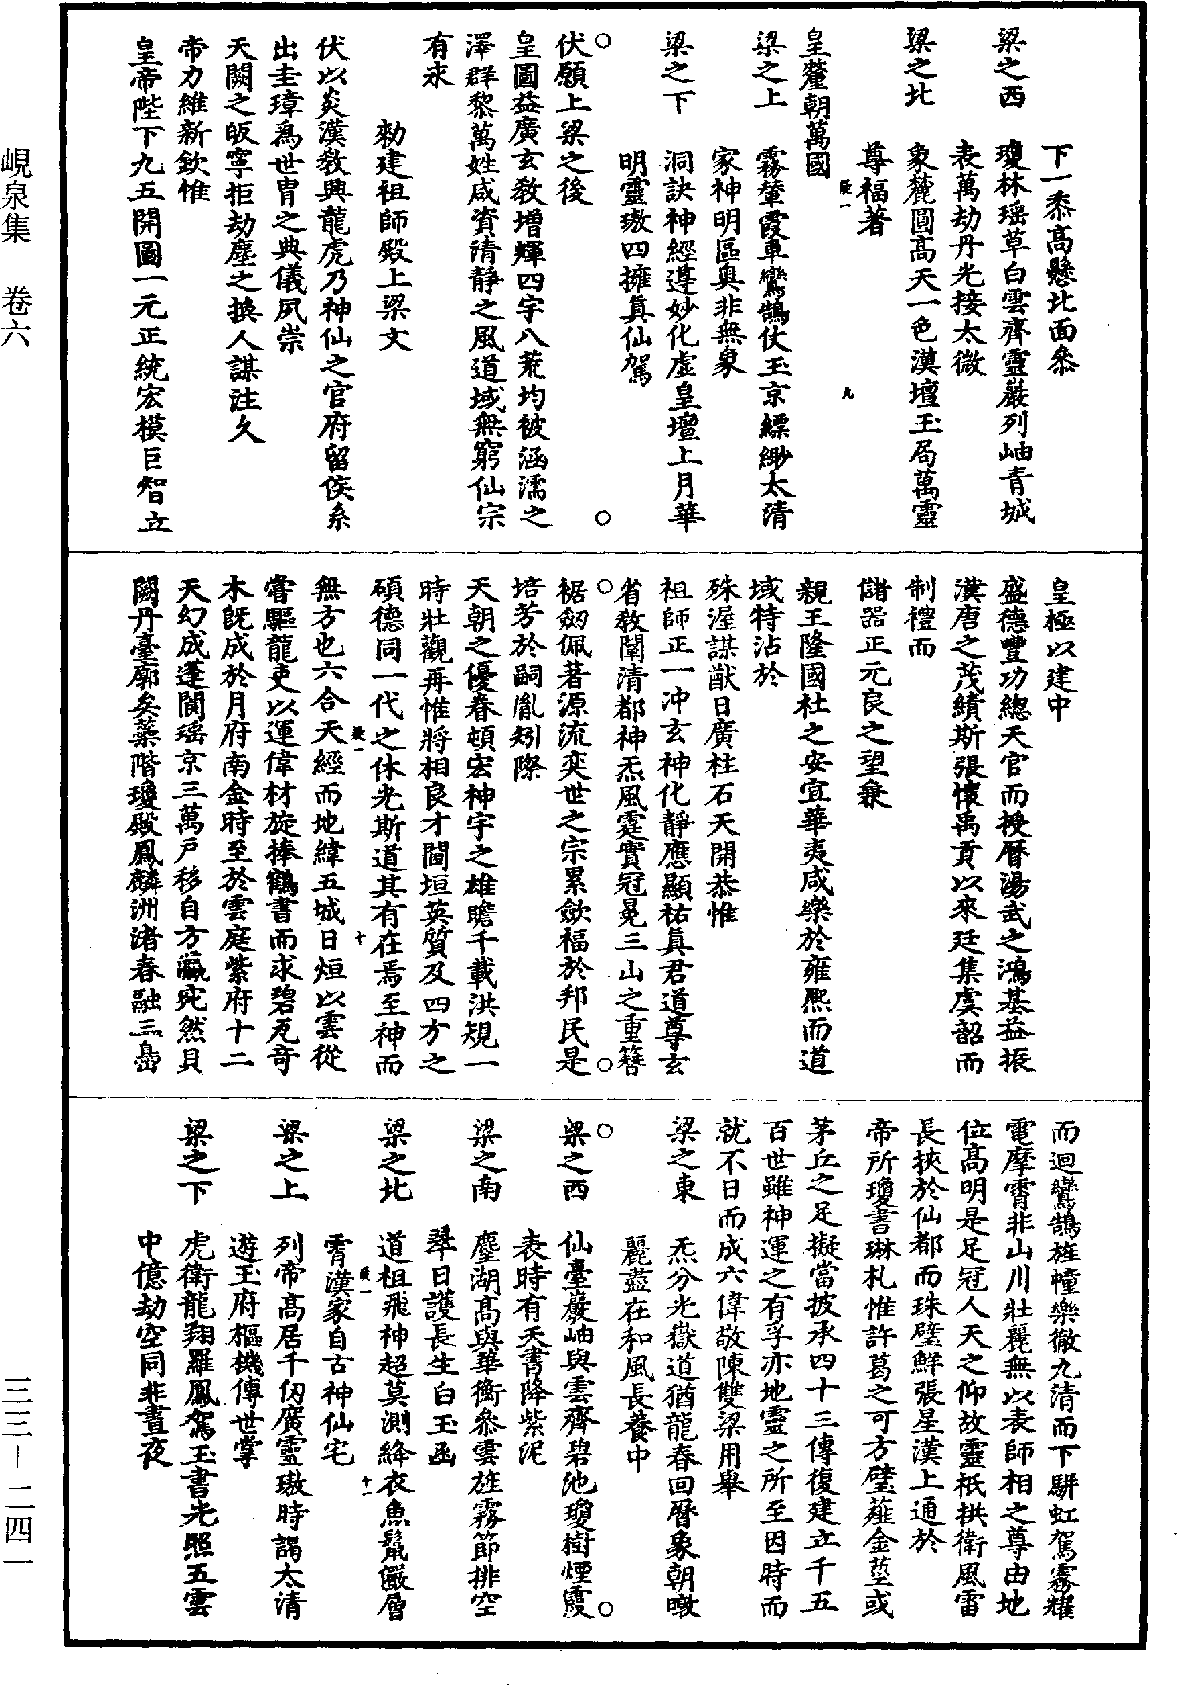 下一黍高懸北面叅
梁之西　瓊林瑶草白雲齊靈巖列岫青城
表萬劫丹光接太微
梁之北　象麓圓高天一色漢壇玉局萬靈
尊福著
皇釐朝萬國
梁之上　霧輦霞車鸞鵠仗玉京縹緲太清
家神明區奥非無象
梁之下　洞訣神經遵妙化虚皇壇上月華
明靈璈四擁真仙駕
伏願上梁之後
皇圖益廣玄教增輝四宇八荒均被涵濡之
澤群黎萬姓咸資清静之風道域無窮仙宗
有永
勑建祖師殿上梁文
伏以炎漢教興龍虎乃神仙之官府留侯系
出圭璋爲世胄之典儀夙崇
天闕之皈寧拒劫塵之換人謀注久
帝力維新欽惟
皇帝陛下九五開圖一元正統宏模巨智立
皇極以建中
盛德豐功總天官而授曆湯武之鴻基益振
漢唐之茂績斯張懷禹貢以來廷集虞韶而
制禮而
儲器正元良之望兼
親王隆國社之安宜華夷咸樂於雍熙而道
域特沾於
殊渥謀猷日廣柱石天開恭惟
祖師正一冲玄神化靜應顯祐真君道尊玄
省教闡清都神炁風霆實冠冕三山之重簪
裾劒佩著源流奕世之宗累歛福於邦民是
培芳於嗣胤矧際
天朝之優眷頓宏神宇之雄瞻千載洪規一
時壯觀再惟將相良才閫垣英質及四方之
碩德同一代之休光斯道其有在焉至神而
無方也六合天經而地緯五城日烜以雲從
嘗驅龍吏以運偉材旋捧鶴書而求碧瓦奇
木既成於月府南金時至於雲庭紫府十二
天幻成蓬閬瑶京三萬戶移自方瀛宂然貝
闕丹臺廓矣蘂階瓊殿鳳麟洲渚春融三島
而迴鸞鵠旌幢樂徹九清而下駢虹駕霧耀
電摩霄非山川壯麗無以表師相之尊由地
位高明是足冠人天之仰故靈祇拱衛風雷
長挾於仙都而珠璧鮮張星漢上通於
帝所瓊書琳札惟許葛之可方璧薤金莖或
茅丘之足擬當披承四十三傳復建立千五
百世雖神運之有孚亦地靈之所至因時而
就不日而成六偉敬陳雙梁用舉
梁之東　炁分光嶽道猶龍春回曆象朝暾
麗藹在和風長養中
梁之西　仙臺巖岫與雲齊碧池瓊樹煙霞
表時有天書降紫泥
梁之南　塵湖高與華衡叅雲旌霧節排空
翠日護長生白玉函
梁之北　道祖飛神超莫測絳衣魚鬣儼層
霄漢家自古神仙宅
梁之上　列帝高居千仞廣靈璈時謁太清
遊王府樞機傳世掌
梁之下　虎衛龍翔羅鳳駕玉書光照五雲
中億劫空同非晝夜
峴泉集　卷六
三三—二四一
九
十
十一